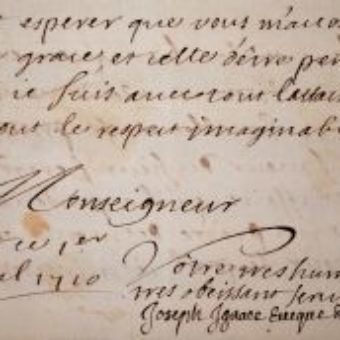 esperer que vous m'acco
grace, et celle d'être per
ie suis avec tout l'attac
out le respect imaginab
Monseigneur
ce 1er
il 1710
Vôtre tres hum
tres obeissant serv
Joseph Ignace Eveque